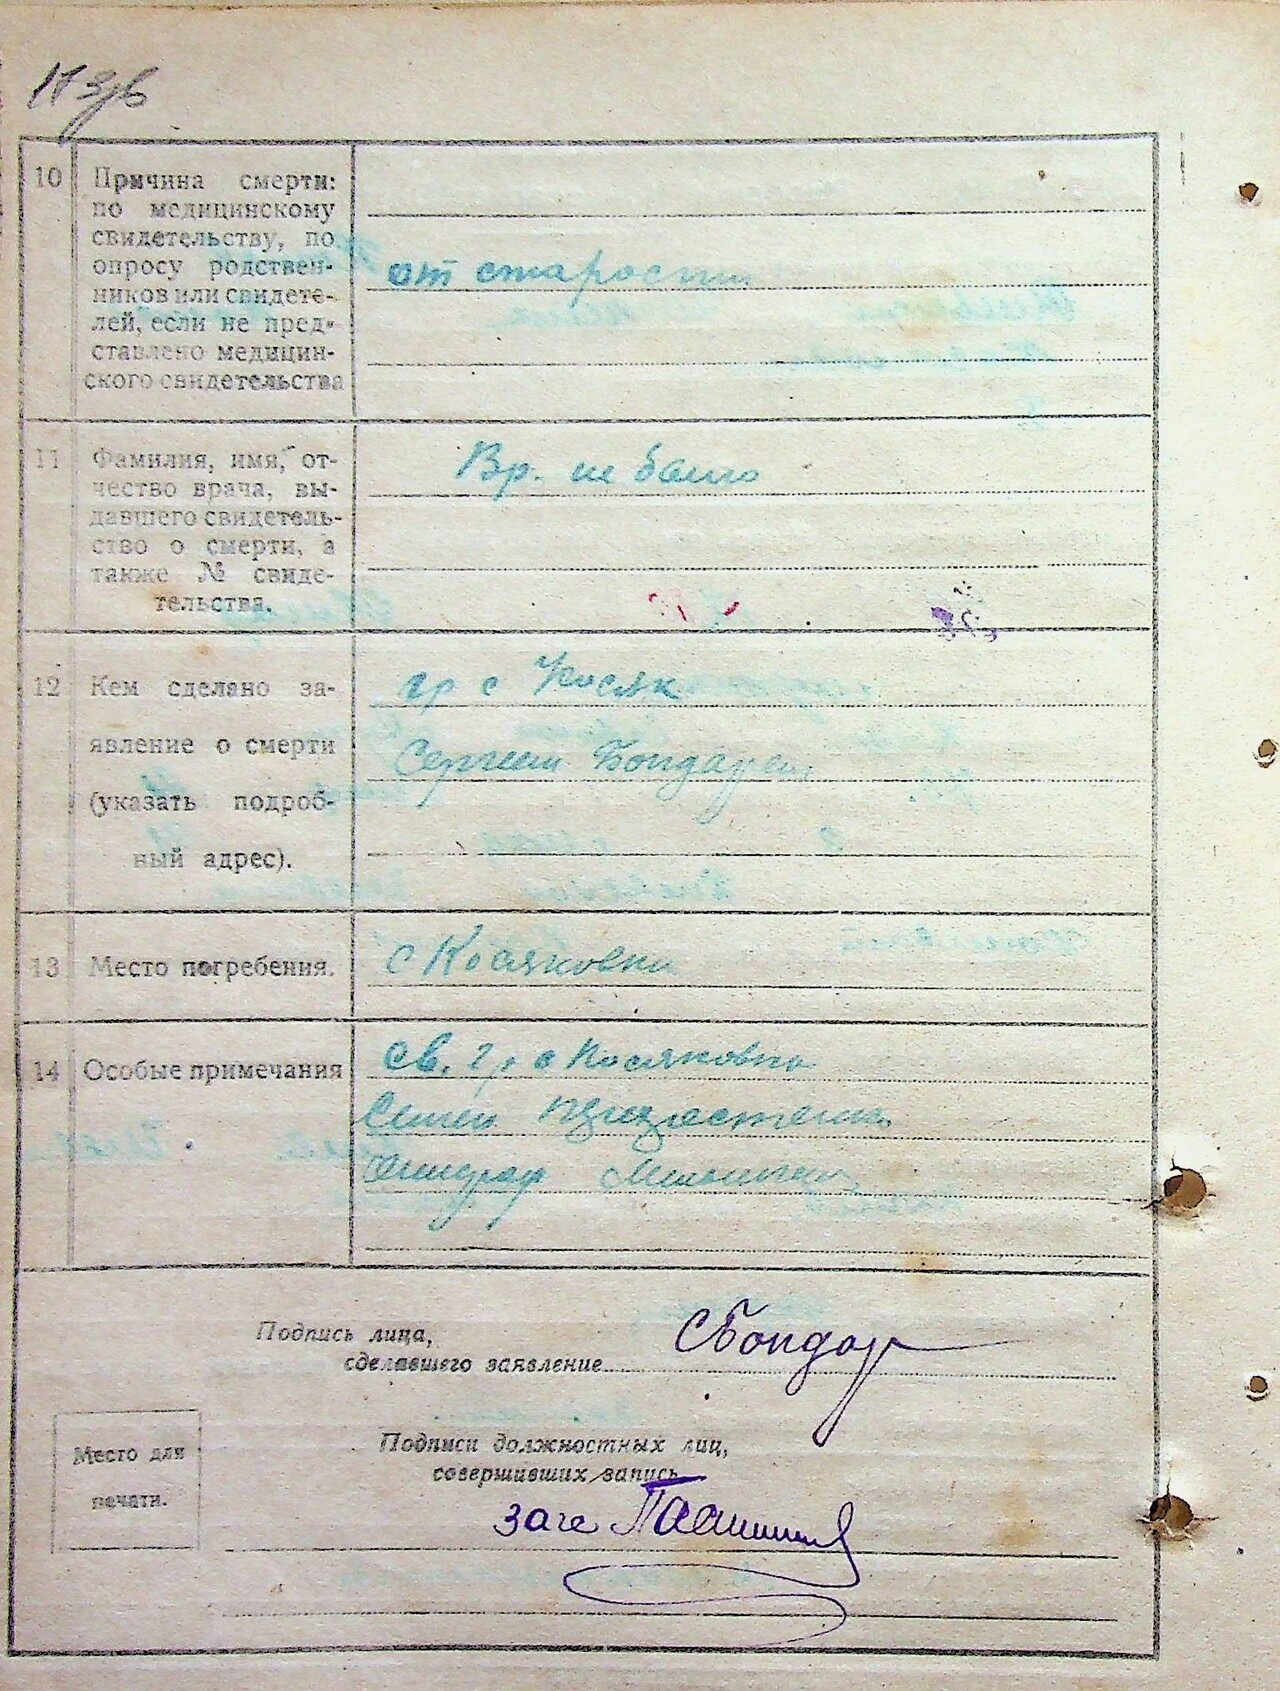 10 Причина смерти:
по медицинскому
свидетельству, по
опросу родствен-
ников или свидете-
лей, если не пред-
ставлено медицин-
ского свидетельства
от старости
11 Фамилия, имя, от-
чество врача, вы-
давшего свидетель-
ство о смерти, а
также № свиде-
тельства.
Вр. не было
12 Кем сделано за-
явление о смерти
(указать подроб-
ный адрес).
гр с Косяк
Сергеем
13 Место погребения.
с Косяковки
14 Особые примечания
Св. гр с Косяковка
Подпись лица,
сделавшего заявление
СБондар
Место для
печати.
Подписи должностных лиц,
совершивших запись